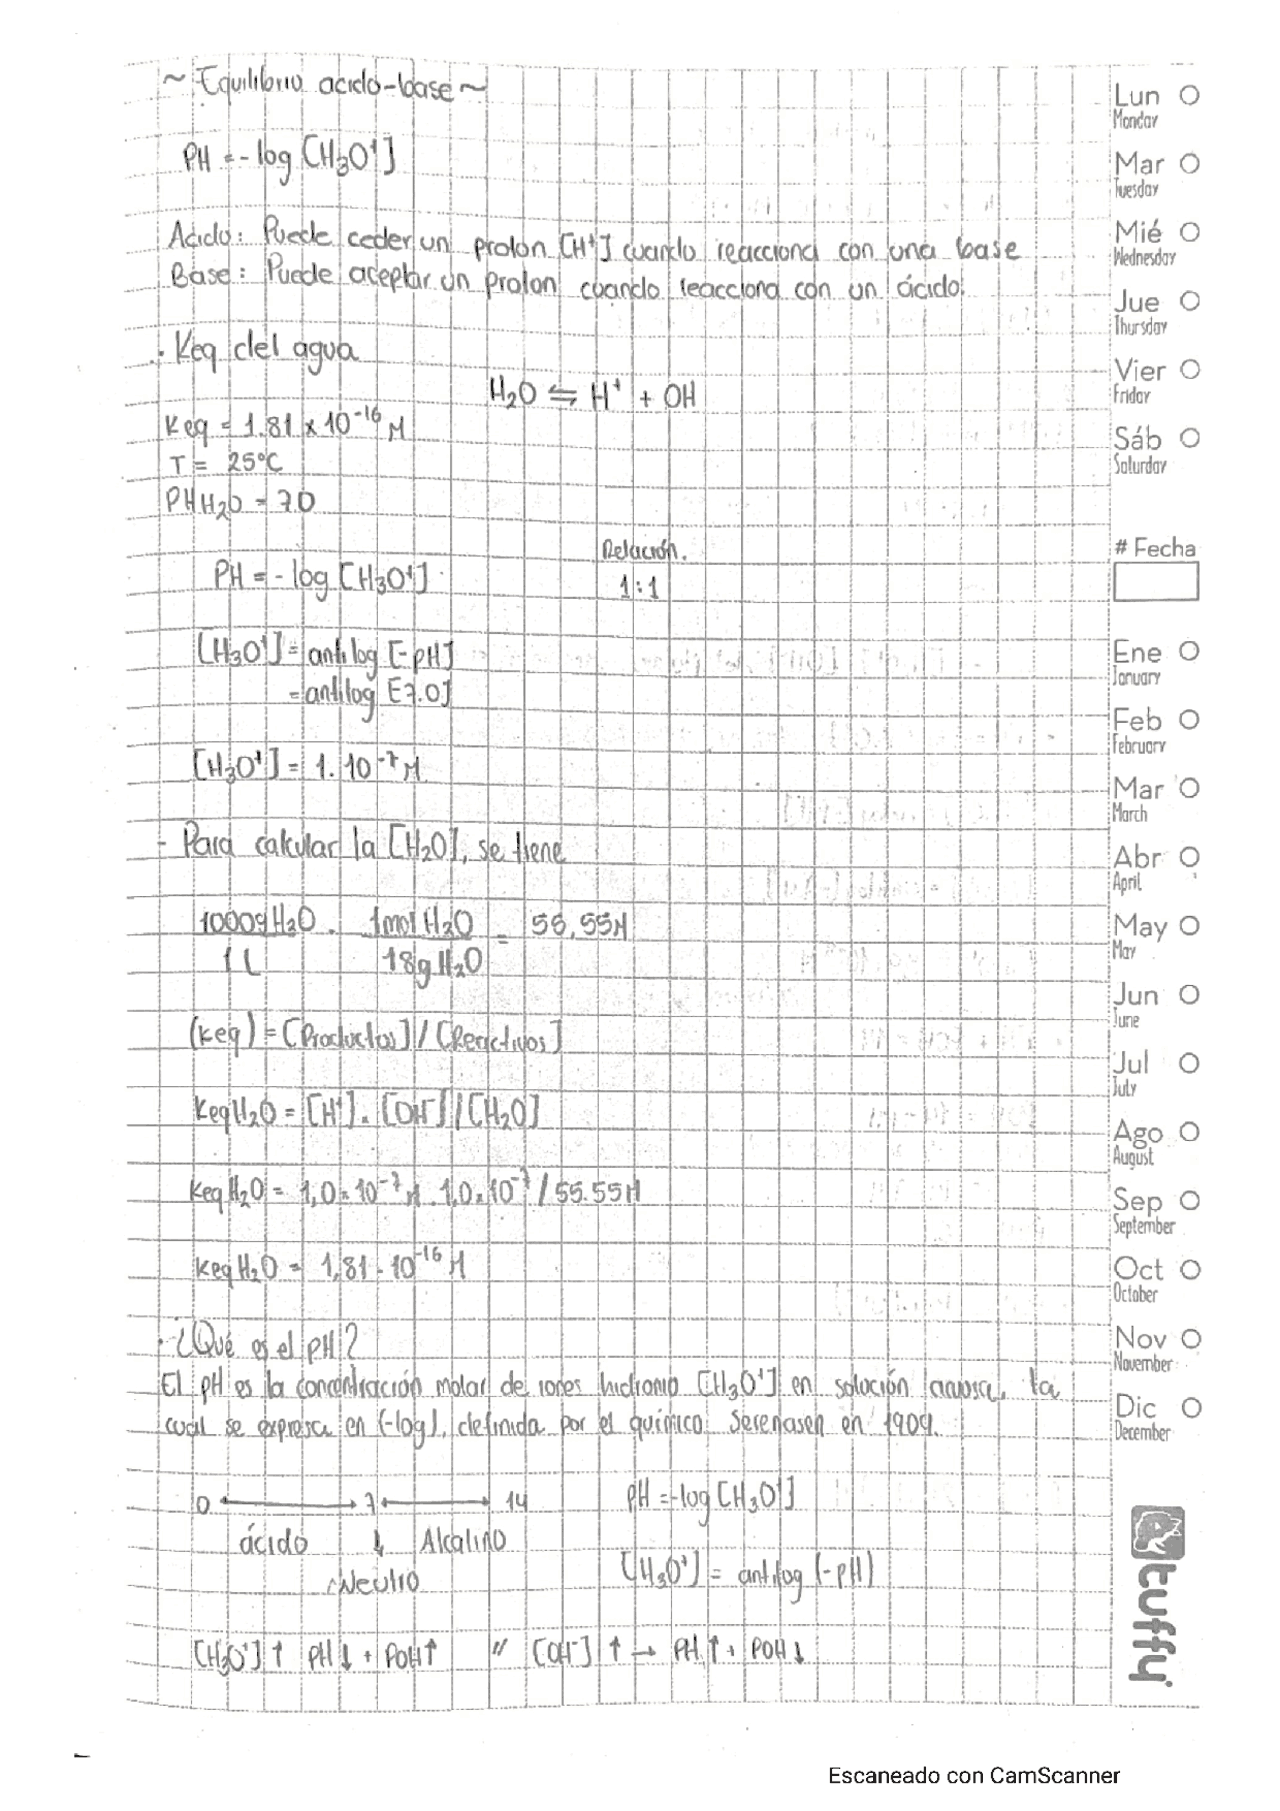 ~ Equilibrio acido-base ~
PH = - log [H3O+]
Acido: Puede ceder un proton [H+] cuando reacciona con una base
Base: Puede aceptar un proton cuando reacciona con un ácido.
· Keq del agua
H2O ⇋ H+ + OH
Keq = 1.81 x 10-16 M
T = 25°C
PH H2O = 7.0
Relación.
PH = - log [H3O+]
1:1
[H3O+] = antilog [-pH]
= antilog [-7.0]
[H3O+] = 1.10-7 M
- Para calcular la [H2O], se tiene
1000g H2O . 1mol H2O = 55,55M
1L 18g H2O
(keq) = [Productos] / [Reactivos]
Keq H2O = [H+] . [OH-] / [H2O]
Keq H2O = 1,0 x 10-7 M . 1,0 x 10-7 / 55.55M
Keq H2O = 1,81 . 10-16 M
· ¿Qué es el pH?
El pH es la concentración molar de iones hidronio [H3O+] en solución acuosa, la
cual se expresa en (-log), definida por el químico Serenasen en 1909.
0 7 14
PH = -log [H3O+]
ácido ↓ Alcalino
Neutro
[H3O+] = antilog (-pH)
[H3O+] ↑ PH ↓ + POH ↑ // [OH-] ↑ → PH ↑ + POH ↓
Lun
Monday
Mar
Tuesday
Mié
Wednesday
Jue
Thursday
Vier
Friday
Sáb
Saturday
# Fecha
Ene
January
Feb
February
Mar
March
Abr
April
May
May
Jun
June
Jul
July
Ago
August
Sep
September
Oct
October
Nov
November
Dic
December
tuffy
Escaneado con CamScanner